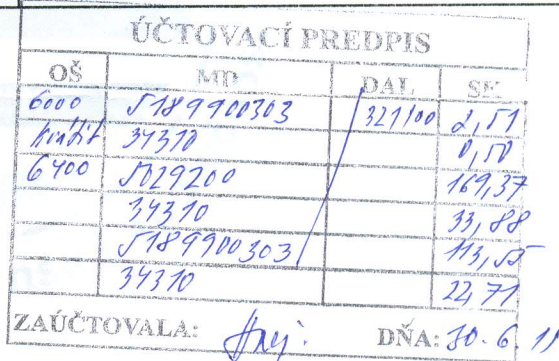 ÚČTOVACÍ PREDPIS
OŠ MD DAL SK
6000 5189900303 321100 2,51
34310 0,50
6400 5029200 169,37
34310 33,88
5189900303 113,55
34310 22,71
ZAÚČTOVALA: DŇA: 30.6.11